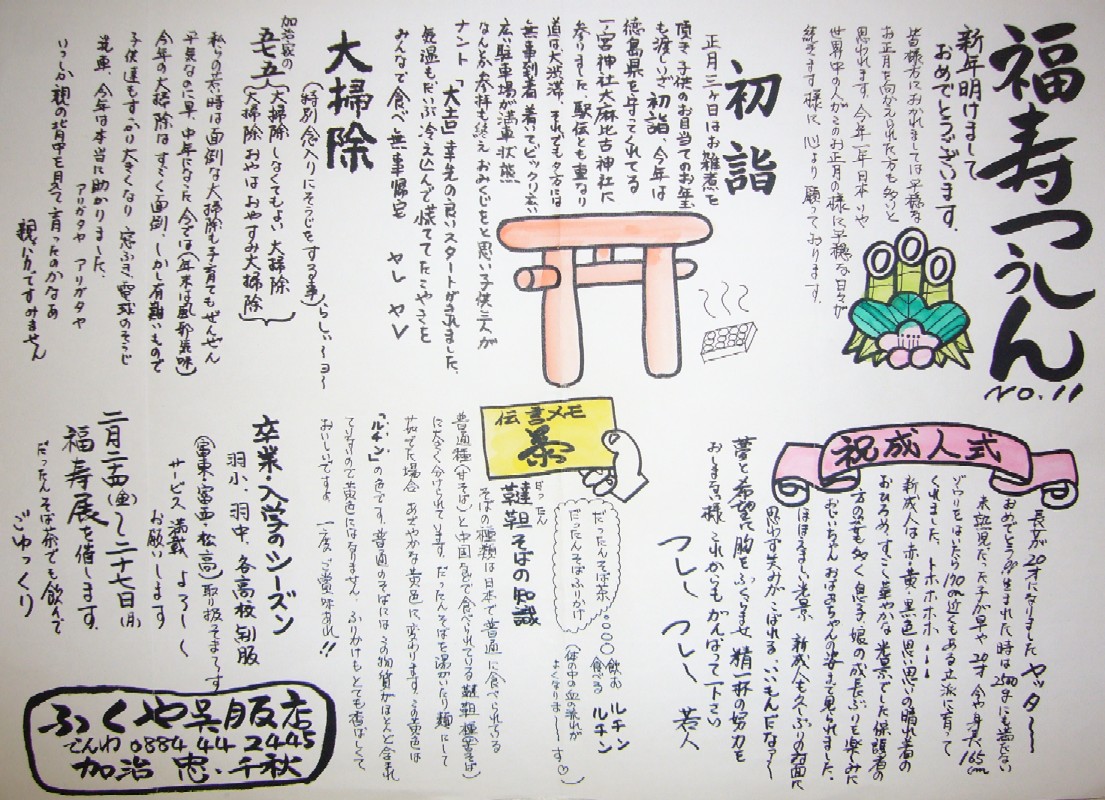 福寿つうしん
NO.11
新年明けまして
おめでとうございます。
皆様方におかれましては平穏な
お正月を向かえられた方も多いと
思われます。今年一年日本いや
世界中の人がこのお正月の様に平穏な日々が
続きます様に心より願っております。
初詣
正月三ヶ日はお雑煮を
頂き子供のお目当てのお年玉
も渡しいざ初詣、今年は
徳島県を守ってくれてる
一宮神社大麻比古神社に
参りました。駅伝とも重なり
道は大渋滞、それでも夕方には
無事到着 着いてビックリ
広い駐車場が満車状態
なんとか参拝も終え おみくじをと思い子供二人が
ナント「大吉」幸先の良いスタートがきれました。
気温もだいぶ冷え込んで焼てたこやきを
みんなで食べ無事帰宅 ヤレヤレ
大掃除
(特別念入りにそうじをする事)らしい〜ヨ〜
加治家の
五七五
大掃除しなくてもよい大掃除
大掃除おやはおやすみ大掃除
私らの若い時は面倒な大掃除も子育てもぜんぜん
平気なのに早、中年になった今では(年末は風邪気味)
今年の大掃除はすごく面倒、しかし有難いもので
子供達もすっかり大きくなり窓ふき、電球のそうじ
洗車、今年は本当に助かりました。
アリガタヤ アリガタヤ
いつしか親の背中を見て育ったのかなあ
親バカですみません
祝成人式
長女が20才になりました ヤッタ〜
おめでとう が生まれた時は2500gにも満たない
未熟児だった子が早や20才 今や身長165cm
ゾウリをはいたら170cm近くもある立派に育って
くれました。トホホホホ・・・
新成人は赤・黄・黒色思い思いの晴れ着の
おひろめ、すごく華やかな光景でした保護者の
方の姿も多く息子、娘の成長ぶりを楽しみに
おじいちゃんおばあちゃんの姿まで見られました。
ほほえましい光景 新成人も久しぶりの対面に
思わず笑みがこぼれる、いいもんだなァ〜
夢と希望に胸をふくらませ、精一杯の努力を
おしまない様 これからもがんばって下さい
フレ〜 フレ〜 若人
伝言メモ
だったんそば茶
だったんそばふりかけ
飲むルチン
食べるルチン
(体の中の血の流れが
よくなりま〜す♡)
だったん
韃靼そばの知識
そばの種類は日本で普通に食べられてる
普通種(甘そば)と中国などで食べられている韃靼種(苦そば)
に大きく分けられています。だったんそばを湯がいたり麺にして
茹でた場合、あざやかな黄色に変わります。この黄色は
「ルチン」の色です。普通のそばにはこの物質がほとんど含まれ
ていないので黄色にはなりません。ふりかけもとても香ばしくて
おいしいですよ 一度ご賞味あれ!!
卒業・入学のシーズン
羽小、羽中、各高校制服
(富東・富西・松高)取り扱ってま〜す
サービス満載 よろし〜く
お願いします
二月二十四(金)〜二十七日(月)
福寿展を催します。
だったんそば茶でも飲んで
ごゆっくり
ふくや呉服店
でんわ 0884 44 2445
加治 忠・千秋